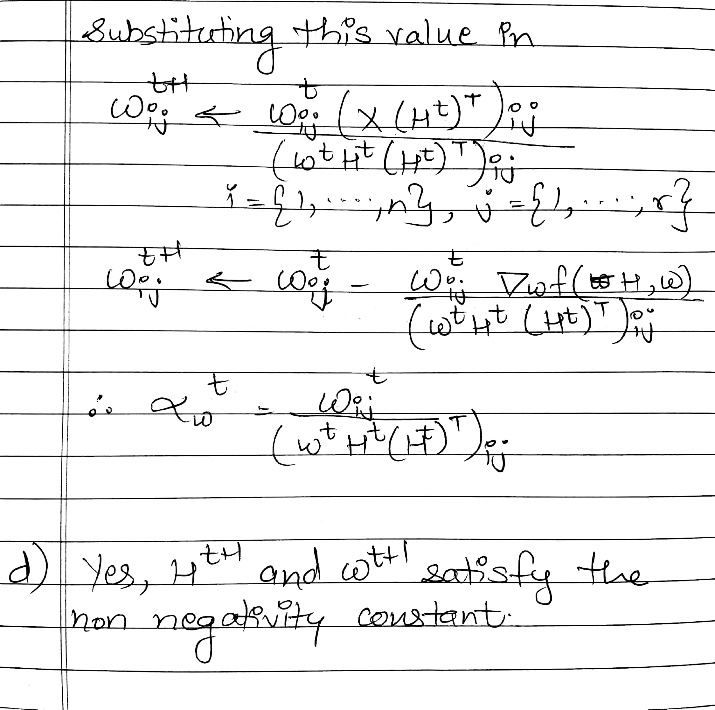 Substituting this value in
ω_ij^{t+1} ← ω_ij^t (X (H^t)^T)_ij / (ω^t H^t (H^t)^T)_ij
i = {1, ....., n}, j = {1, ....., r}
ω_ij^{t+1} ← ω_ij^t - ω_ij^t ∇ωf(H, ω) / (ω^t H^t (H^t)^T)_ij
∴ α_ω^t = ω_ij^t / (ω^t H^t (H^t)^T)_ij
d) Yes, H^{t+1} and ω^{t+1} satisfy the
non negativity constant.